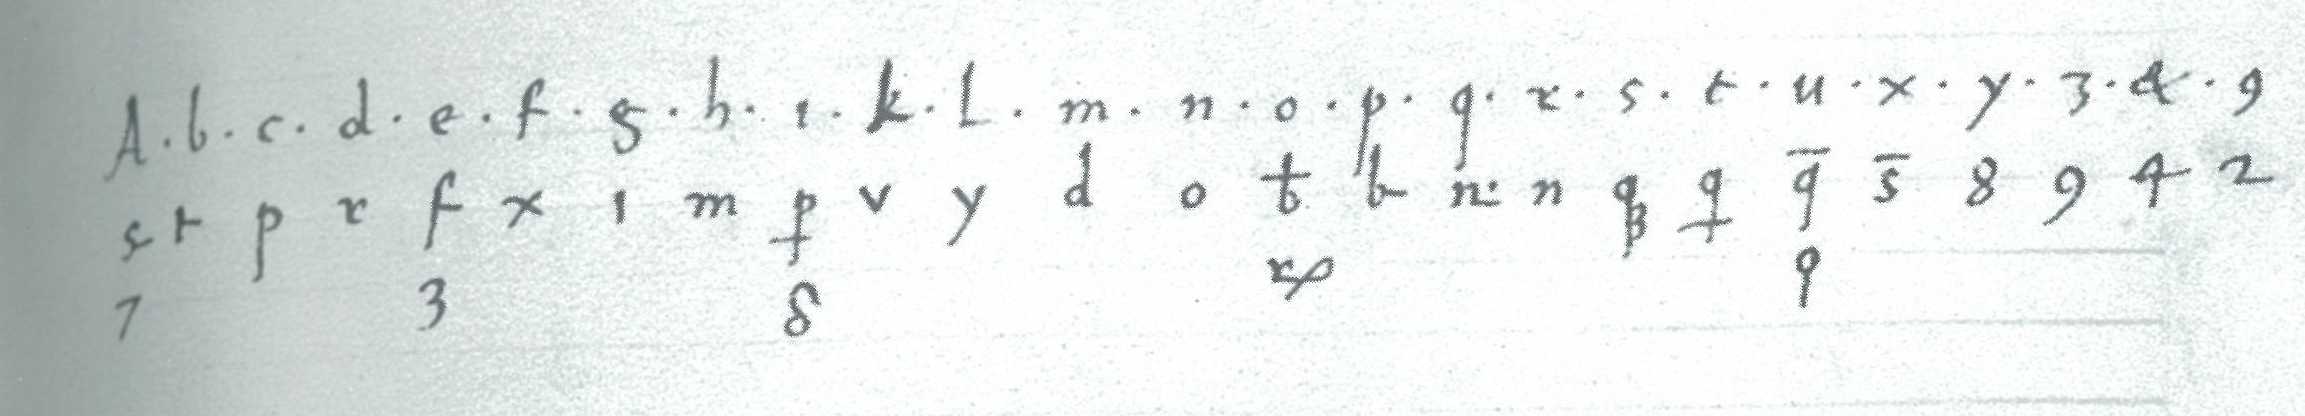 A · b · c · d · e · f · g · h · ı · k · l · m · n · o · p · q · r · s · t · u · x · y · 3 · & · 9
s t p r f x ı m p v y d o t b n: n q q q̄ s̄ 8 9 4 2
7 3 8 q